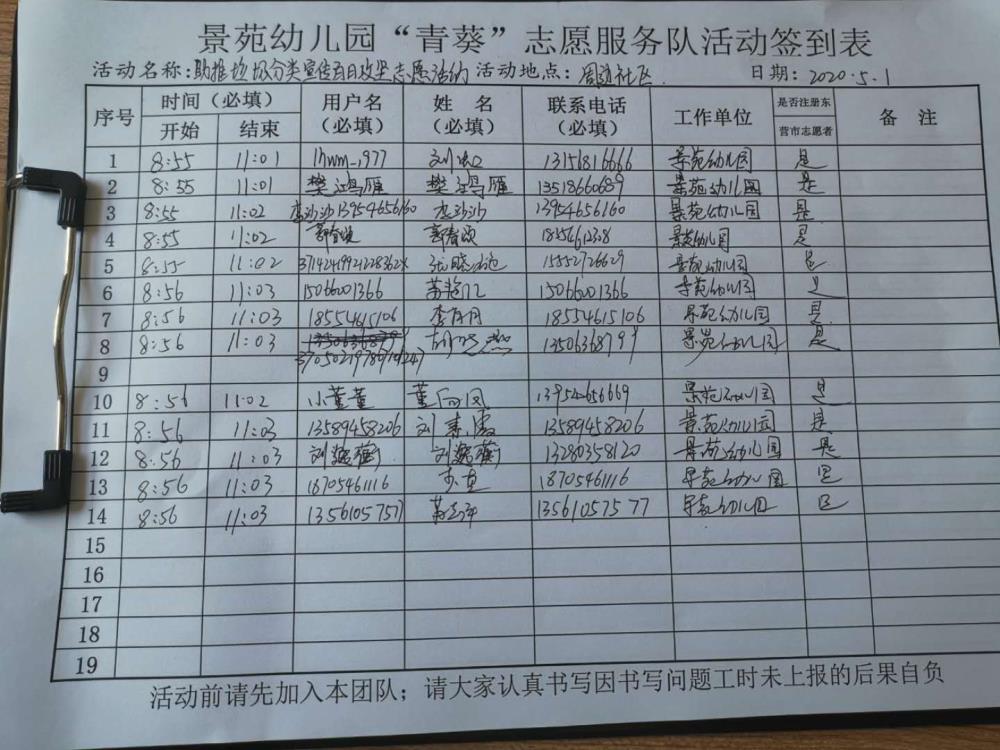 景苑幼儿园“青葵”志愿服务队活动签到表
活动名称:助推垃圾分类宣传百日攻坚志愿活动 活动地点:周边社区 日期:2020.5.1
序号 时间（必填） 用户名（必填） 姓 名（必填） 联系电话（必填） 工作单位 是否注册东营市志愿者 备 注
开始 结束
1 8:55 11:01 刘 13156816666 景苑幼儿园 是
2 8:55 11:01 樊鸿雁 樊鸿雁 13518660689 景苑幼儿园 是
3 8:55 11:02 李沙沙13954656160 李沙沙 13954656160 景苑幼儿园 是
4 8:55 11:02 景苑幼儿园 是
5 8:55 11:02 张晓 15552726629 景苑幼儿园 是
6 8:56 11:03 15066001366 15066001366 景苑幼儿园 是
7 8:56 11:03 18554615106 李月月 18554615106 景苑幼儿园 是
8 8:56 11:03 胡晓燕 景苑幼儿园 是
9
10 8:56 11:02 小董董 董 13954656669 景苑幼儿园 是
11 8:56 11:03 13589458206 刘秉霞 13589458206 景苑幼儿园 是
12 8:56 11:03 刘巍蘅 刘巍蘅 13280358120 景苑幼儿园 是
13 8:56 11:03 18705461116 18705461116 景苑幼儿园 是
14 8:56 11:03 13561057577 13561057577 景苑幼儿园 是
15
16
17
18
19
活动前请先加入本团队；请大家认真书写因书写问题工时未上报的后果自负